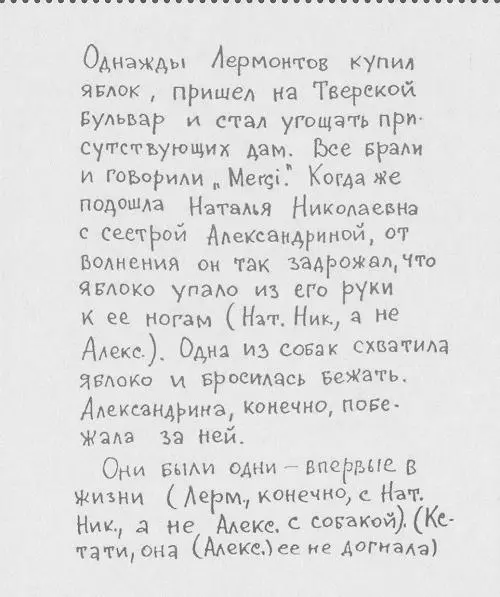 Однажды Лермонтов купил
яблок, пришел на Тверской
бульвар и стал угощать при-
сутствующих дам. Все брали
и говорили „Merçi." Когда же
подошла Наталья Николаевна
с сестрой Александриной, от
волнения он так задрожал, что
яблоко упало из его руки
к ее ногам (Нат. Ник., а не
Алекс.). Одна из собак схватила
яблоко и бросилась бежать.
Александрина, конечно, побе-
жала за ней.
Они были одни – впервые в
жизни (Лерм., конечно, с Нат.
Ник., а не Алекс. с собакой). (Кс-
тати, она (Алекс.) ее не догнала)